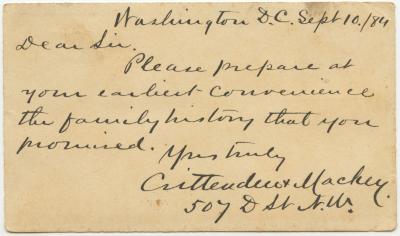 Washington D.C. Sept 10./84
Dear Sir.
Please prepare at
your earliest convenience
the family history that you
promised.
Yrs truly
Crittenden & Mackey.
507 D St N.W.